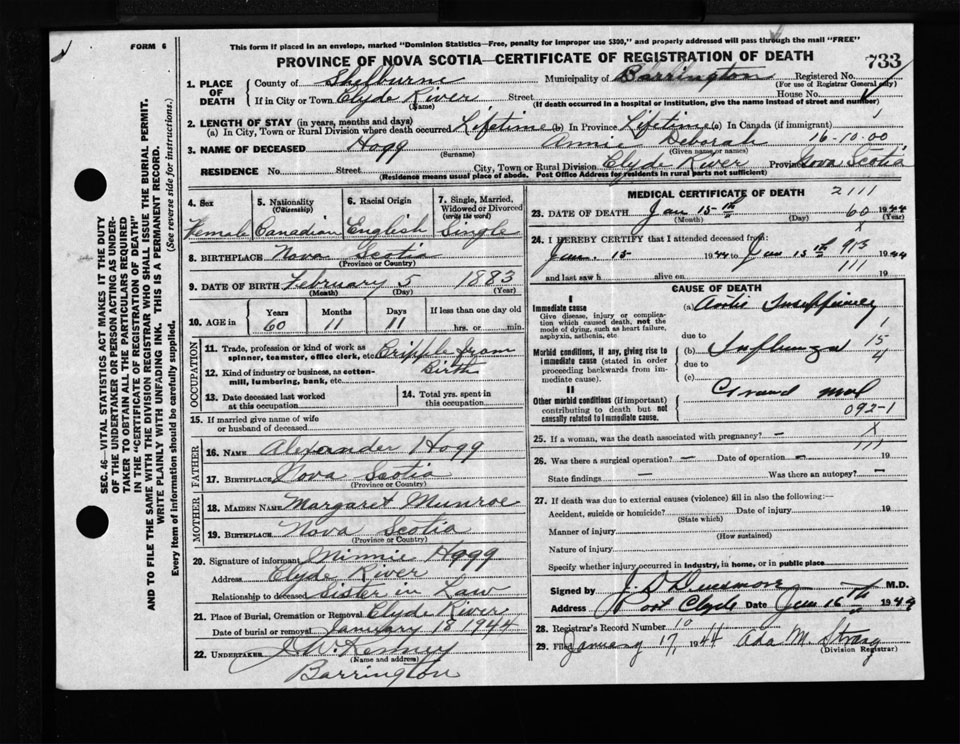 FORM 6
This form if placed in an envelope, marked "Dominion Statistics—Free, penalty for improper use $300," and properly addressed will pass through the mail "FREE"
PROVINCE OF NOVA SCOTIA—CERTIFICATE OF REGISTRATION OF DEATH
733
1. PLACE OF DEATH
County of Shelburne Municipality of Barrington Registered No.
(For use of Registrar General only)
If in City or Town Clyde River Street House No.
(Name) (If death occurred in a hospital or institution, give the name instead of street and number)
2. LENGTH OF STAY (in years, months and days)
(a) In City, Town or Rural Division where death occurred Lifetime (b) In Province Lifetime (c) In Canada (if immigrant)
3. NAME OF DECEASED Hogg Annie Deborah 16-10.00
(Surname) (Given name or names)
RESIDENCE No. Street City, Town or Rural Division Clyde River Province Nova Scotia
(Residence means usual place of abode. Post Office Address for residents in rural parts not sufficient)
4. Sex
Female
5. Nationality (Citizenship)
Canadian
6. Racial Origin
English
7. Single, Married, Widowed or Divorced (write the word)
Single
8. BIRTHPLACE Nova Scotia
(Province or Country)
9. DATE OF BIRTH February 5 1883
(Month) (Day) (Year)
10. AGE in Years Months Days If less than one day old
60 11 11 hrs. or min.
OCCUPATION
11. Trade, profession or kind of work as spinner, teamster, office clerk, etc. Cripple from
Birth
12. Kind of industry or business, as cotton-mill, lumbering, bank, etc.
13. Date deceased last worked at this occupation
14. Total yrs. spent in this occupation
15. If married give name of wife or husband of deceased
FATHER
16. NAME Alexander Hogg
17. BIRTHPLACE Nova Scotia
(Province or Country)
MOTHER
18. MAIDEN NAME Margaret Munroe
19. BIRTHPLACE Nova Scotia
(Province or Country)
20. Signature of informant Minnie Hogg
Address Clyde River
Relationship to deceased Sister in Law
21. Place of Burial, Cremation or Removal Clyde River
Date of burial or removal January 18 1944
22. UNDERTAKER J. W. Kenney
(Name and address)
Barrington
MEDICAL CERTIFICATE OF DEATH
2111
23. DATE OF DEATH Jan 15th 60 1944
(Month) (Day) (Year)
x
24. I HEREBY CERTIFY that I attended deceased from:
Jan. 15 1944 to Jan 15th 1944
913
and last saw h alive on 111 19
CAUSE OF DEATH
I
Immediate cause
Give disease, injury or complication which caused death, not the mode of dying, such as heart failure, asphyxia, asthenia, etc
(a) Aortic Insufficiency
1
due to
15
Morbid conditions, if any, giving rise to immediate cause (stated in order proceeding backwards from immediate cause).
(b) Influenza
4
due to
(c)
II
Other morbid conditions (if important) contributing to death but not causally related to immediate cause.
092-1
25. If a woman, was the death associated with pregnancy? — x
111
26. Was there a surgical operation? — Date of operation — 19
State findings — Was there an autopsy? —
27. If death was due to external causes (violence) fill in also the following:—
Accident, suicide or homicide? Date of injury 19
(State which)
Manner of injury
(How sustained)
Nature of injury
Specify whether injury occurred in industry, in home, or in public place
Signed by M.D.
Address Port Clyde Date Jan 16th 1944
28. Registrar's Record Number 10
29. Filed January 17, 1944 Ada M. Strang
(Division Registrar)
SEC. 46—VITAL STATISTICS ACT MAKES IT THE DUTY
OF THE UNDERTAKER OR PERSON ACTING AS UNDER-
TAKER TO OBTAIN ALL THE PARTICULARS REQUIRED
IN THE "CERTIFICATE OF REGISTRATION OF DEATH"
AND TO FILE THE SAME WITH THE DIVISION REGISTRAR WHO SHALL ISSUE THE BURIAL PERMIT.
WRITE PLAINLY WITH UNFADING INK. THIS IS A PERMANENT RECORD.
Every item of information should be carefully supplied. (See reverse side for instructions.)